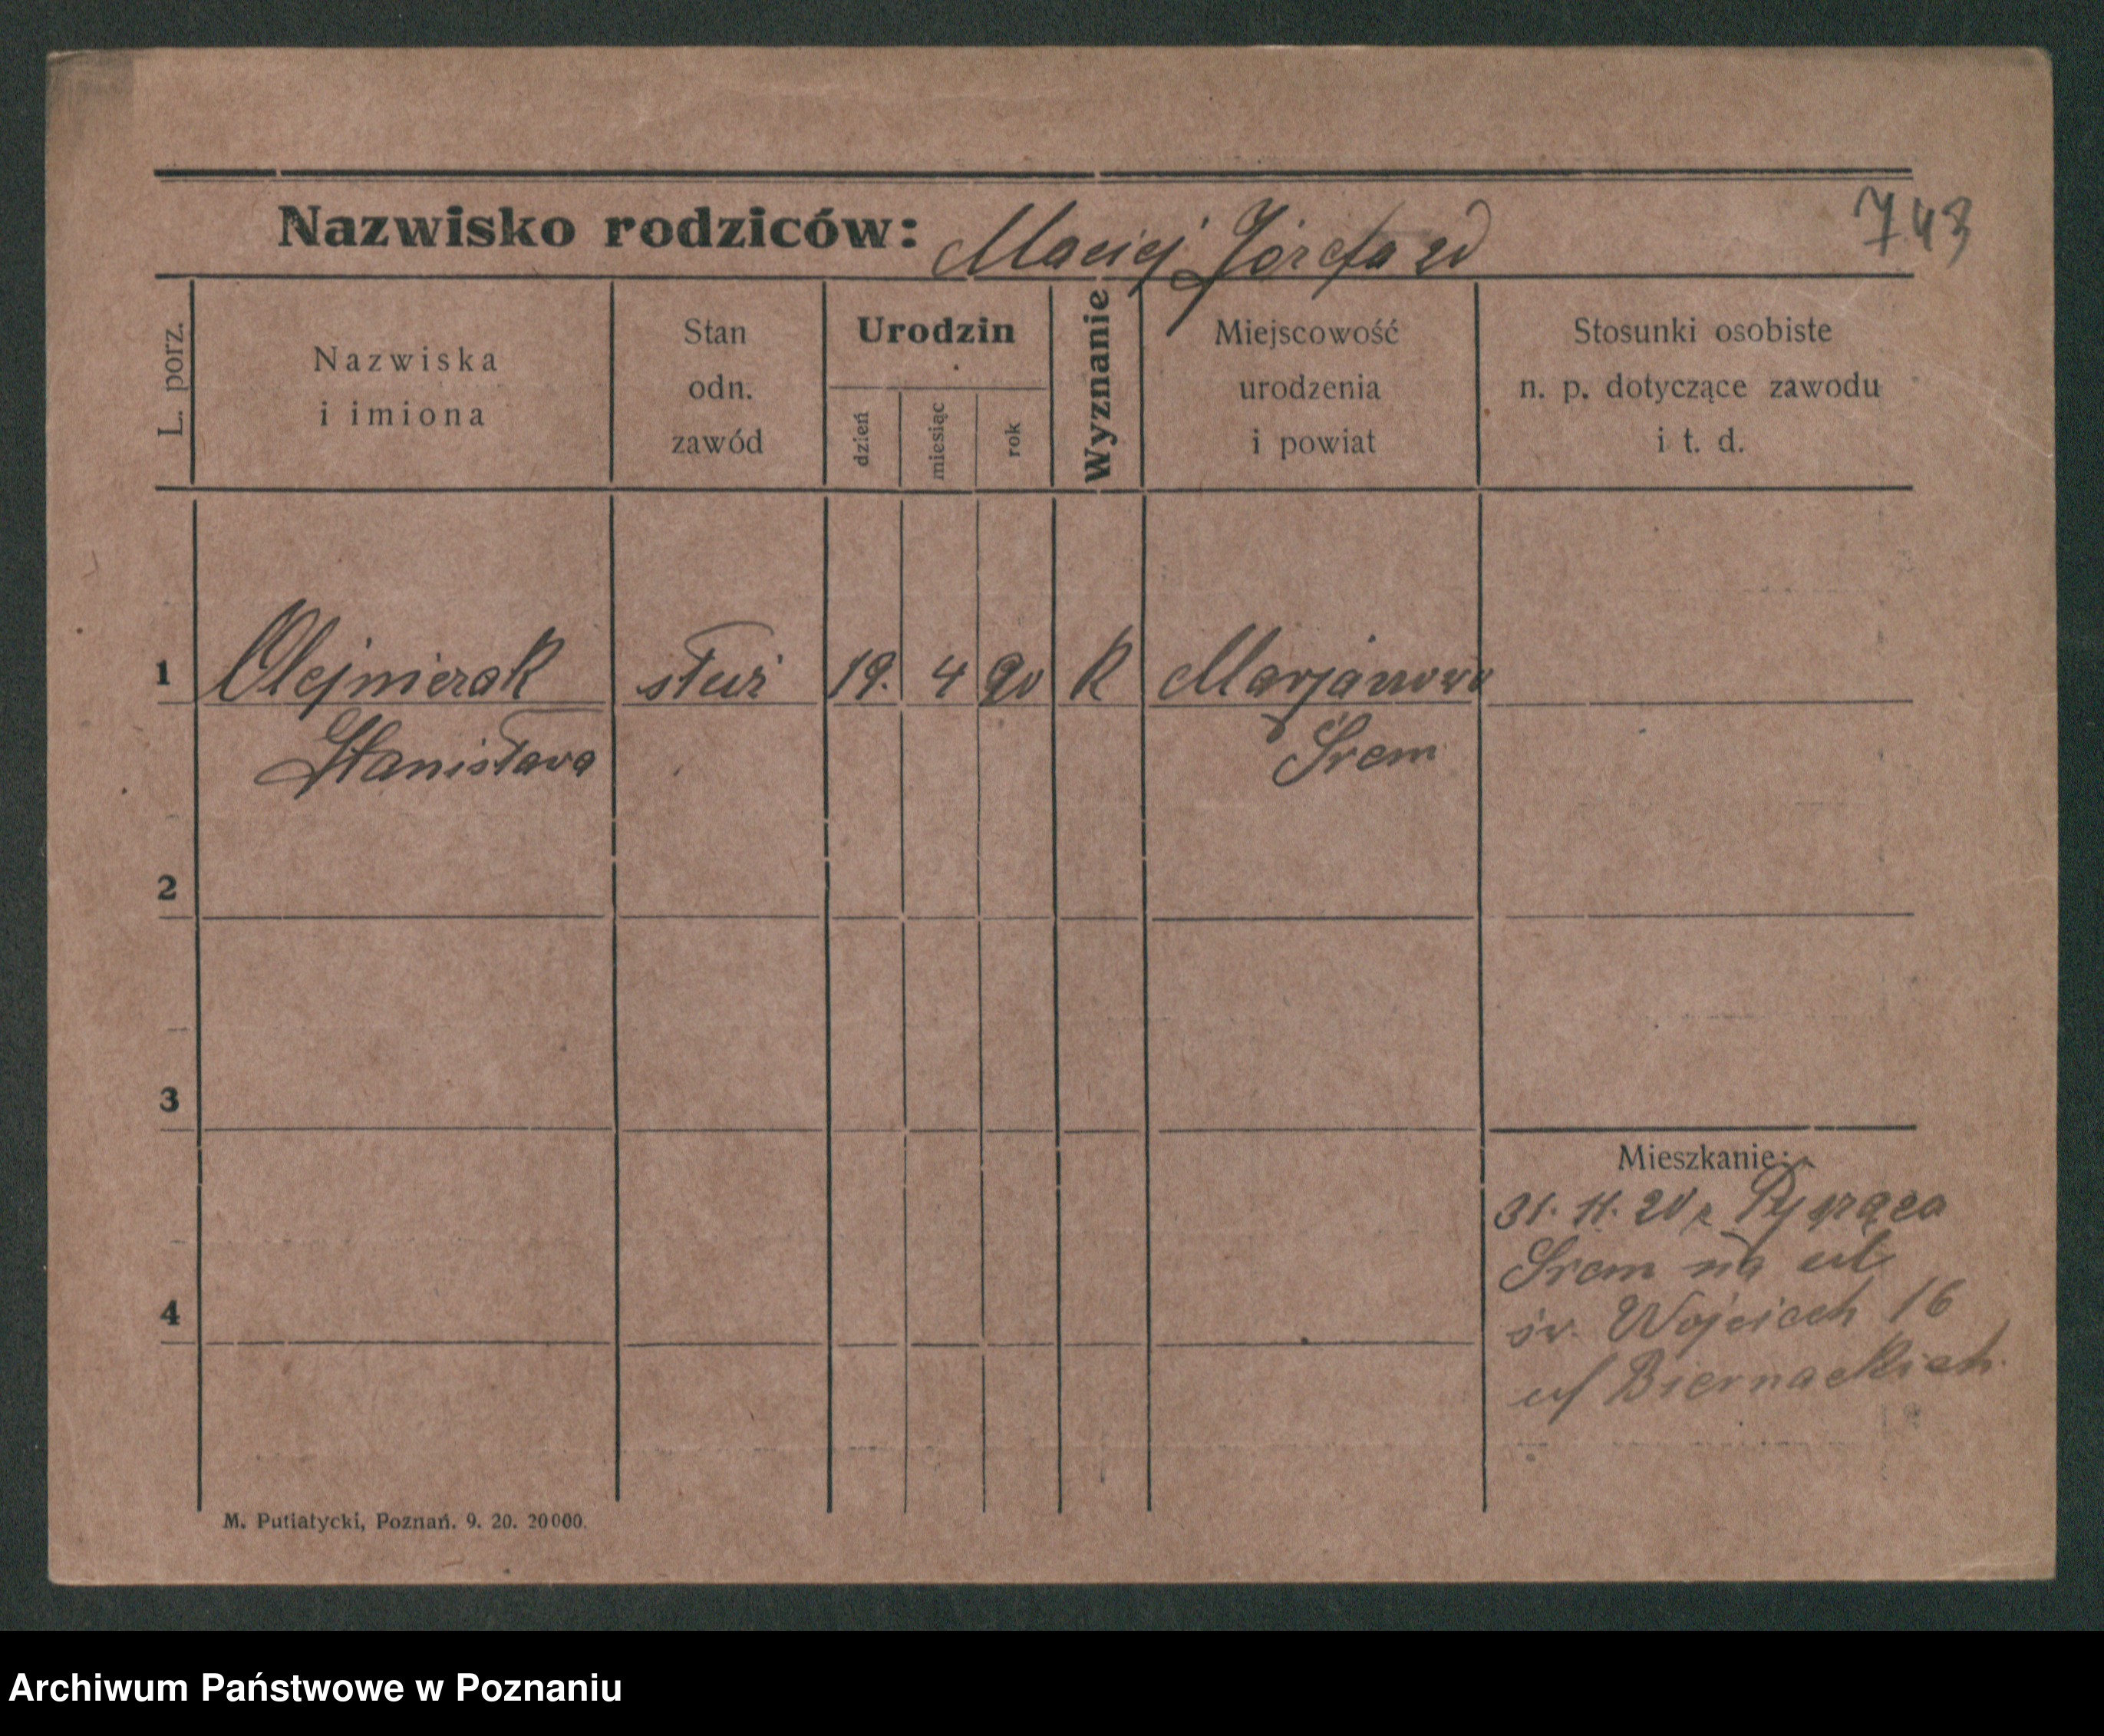 743
Nazwisko rodziców: Maciej Józefa zd
L. porz.
Nazwiska
i imiona
Stan
odn.
zawód
Urodzin
dzień
miesiąc
rok
Wyznanie
Miejscowość
urodzenia
i powiat
Stosunki osobiste
n. p. dotyczące zawodu
i t. d.
1 Olejniczak służ 19. 4 90 K Marjanowo
Stanisława Śrem
2
3
4
Mieszkanie:
31. 11. 20 z
Śrem na ul
św. Wojciech 16
u/ Biernackich
M. Putiatycki, Poznań. 9. 20. 20000.
Archiwum Państwowe w Poznaniu